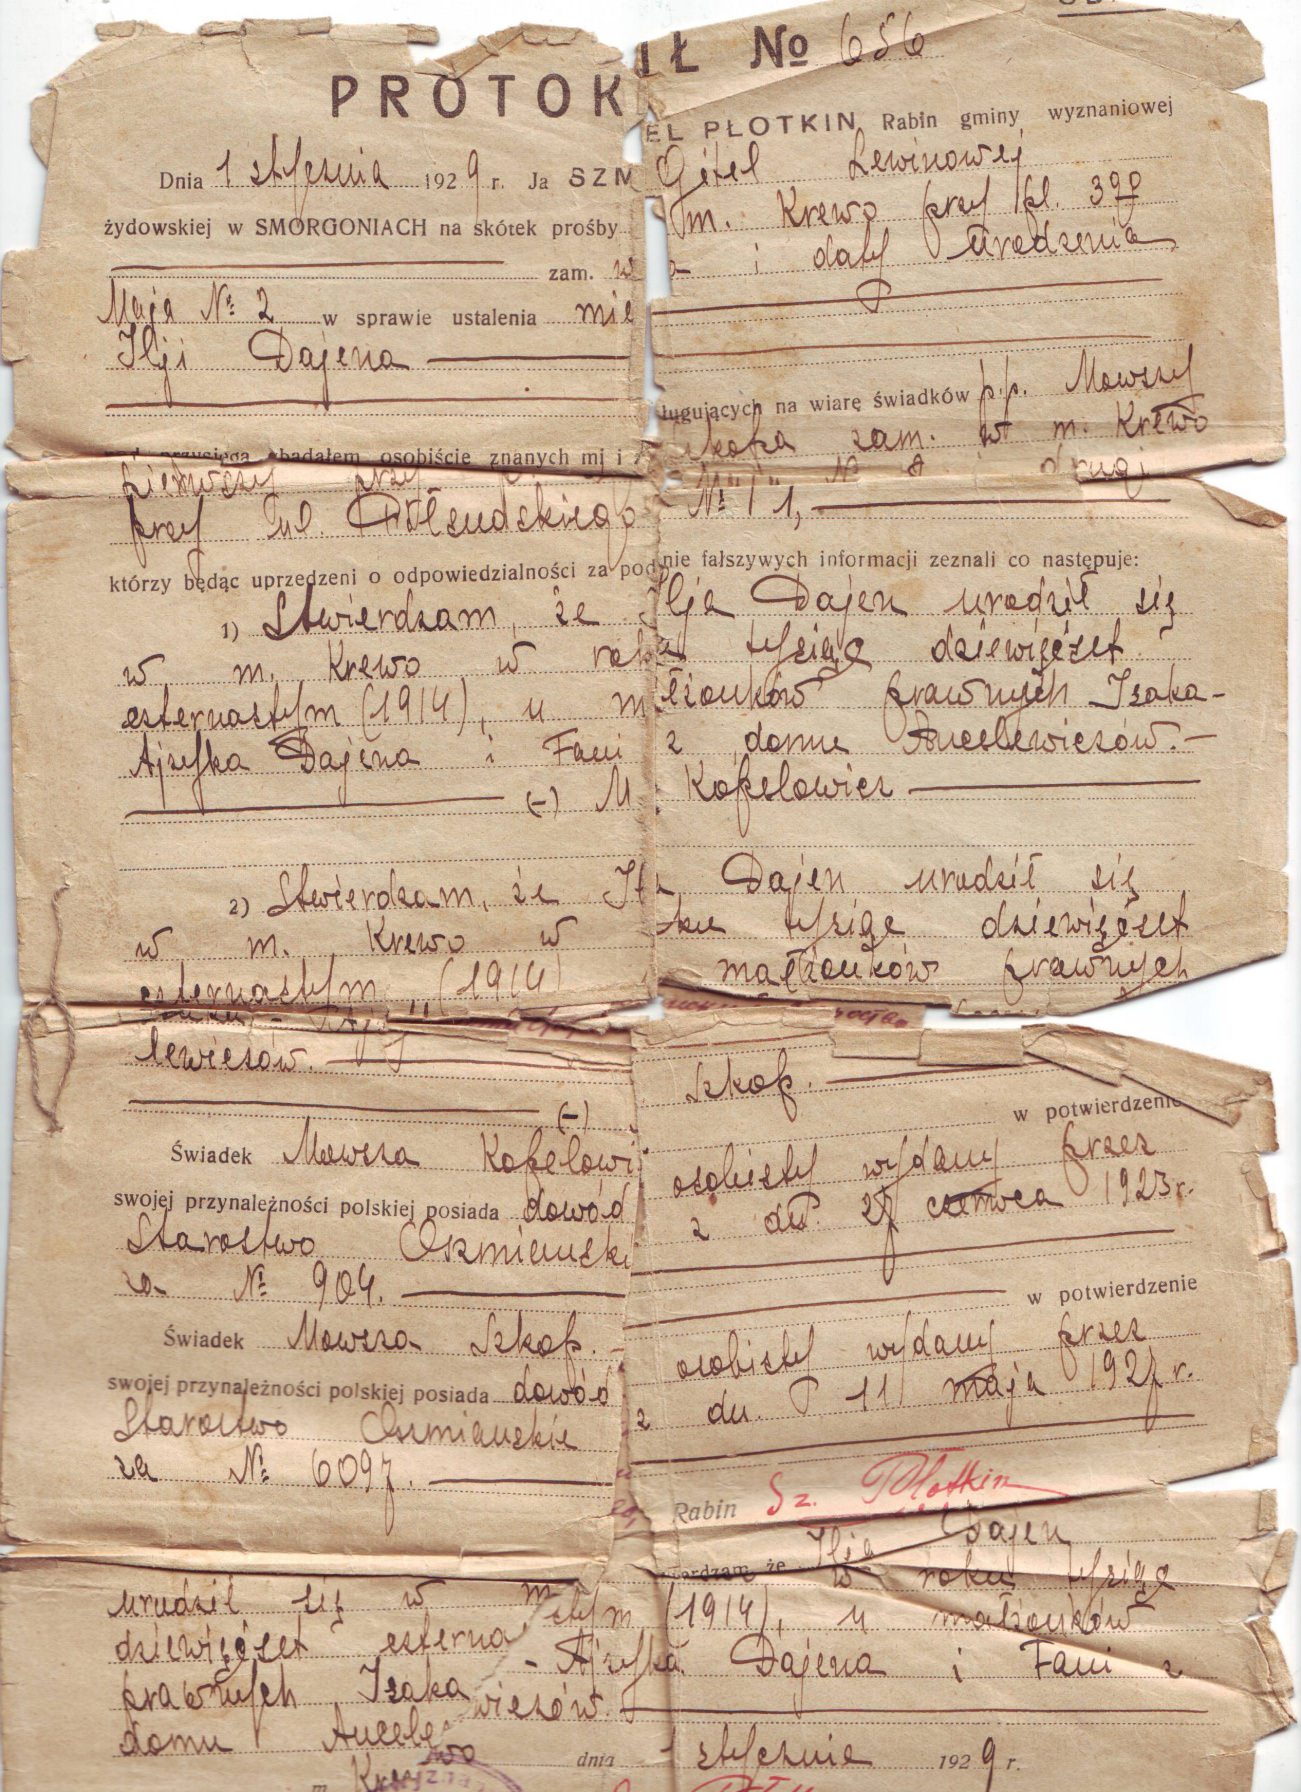 PROTOKÓŁ № 656
Dnia 1 stycznia 1929 r. Ja SZMUEL PŁOTKIN Rabin gminy wyznaniowej
żydowskiej w SMORGONIACH na skótek prośby Gitel Lewinowej
zam. w m. Krewo przy pl. 3go
Maja № 2 w sprawie ustalenia miejsca i daty urodzenia
Ilji Dajena
pod przysięgą zbadałem osobiście znanych mi i zasługujących na wiarę świadków p.p. Mowszy
Szkopa zam. w m. Krewo
pierwszy przy № 8 drugi
przy ul. Piłsudskiego № 1,
którzy będąc uprzedzeni o odpowiedzialności za podanie fałszywych informacji zeznali co następuje:
1) Stwierdzam, że Ilja Dajen urodził się
w m. Krewo w roku tysiąc dziewięćset
czternastym (1914), u małżonków prawnych Izaka-
Ajzyka Dajena i Fani z domu Ancelewiczów.-
(-) M. Kopelowicz
2) Stwierdzam, że Ilja Dajen urodził się
w m. Krewo w roku tysiąc dziewięćset
czternastym (1914) małżonków prawnych
lewiczów.
(-) Szkop.
Świadek Mowsza Kopelowicz w potwierdzenie
swojej przynależności polskiej posiada dowód osobisty wydany przez
Starostwo Oszmiańskie z dn. 27 czerwca 1923 r.
za № 904.
Świadek Mowsza Szkop. w potwierdzenie
swojej przynależności polskiej posiada dowód osobisty wydany przez
Starostwo Oszmiańskie z dn. 11 maja 1927 r.
za № 6097.
Rabin Sz. Płotkin
że Ilja Dajen
urodził się w m. w roku tysiąc
dziewięćset czternastym (1914), u małżonków
prawnych Izaka - Ajzyka Dajena i Fani z
domu Ancelewiczów.
m. Krewo dnia stycznia 1929 r.